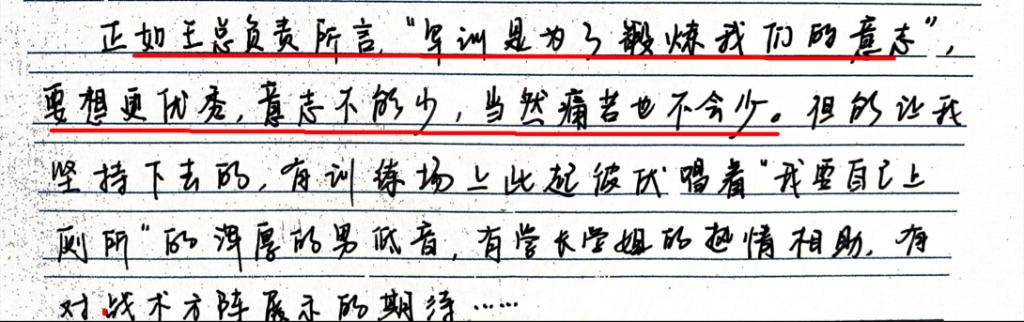 正如王总负责所言，“军训是为了锻炼我们的意志”，
要想更优秀，意志不能少，当然痛苦也不会少。但能让我
坚持下去的，有训练场上此起彼伏唱着“我要自己上
厕所”的浑厚的男低音，有学长学姐的热情相助，有
对战术方阵展示的期待……